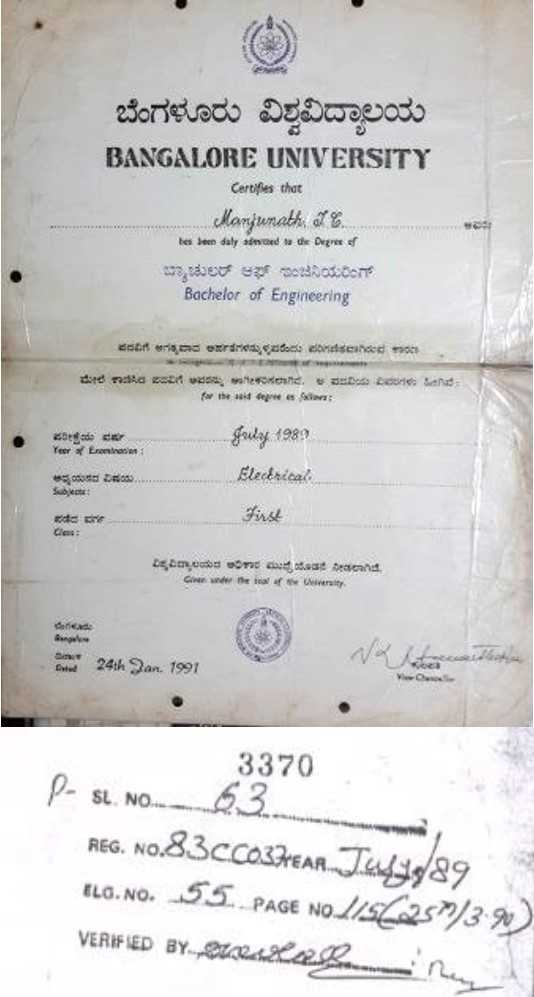 ಬೆಂಗಳೂರು ವಿಶ್ವವಿದ್ಯಾಲಯ
BANGALORE UNIVERSITY
Certifies that
Manjunath. T.C. ಅವರು
has been duly admitted to the Degree of
ಬ್ಯಾಚುಲರ್ ಆಫ್ ಇಂಜಿನಿಯರಿಂಗ್
Bachelor of Engineering
ಪದವಿಗೆ ಅಗತ್ಯವಾದ ಅರ್ಹತೆಗಳನ್ನುಳ್ಳವರೆಂದು ಪರಿಗಣಿತವಾಗಿರುವ ಕಾರಣ
of requirements
ಮೇಲೆ ಕಾಣಿಸಿದ ಪದವಿಗೆ ಅವರನ್ನು ಅಂಗೀಕರಿಸಲಾಗಿದೆ. ಆ ಪದವಿಯ ವಿವರಗಳು ಹೀಗಿವೆ :
for the said degree as follows :
ಪರೀಕ್ಷೆಯ ವರ್ಷ July 1989
Year of Examination :
ಅಧ್ಯಯನದ ವಿಷಯ Electrical
Subjects :
ಪಡೆದ ವರ್ಗ First
Class :
ವಿಶ್ವವಿದ್ಯಾಲಯದ ಅಧಿಕಾರ ಮುದ್ರೆಯೊಡನೆ ನೀಡಲಾಗಿದೆ.
Given under the seal of the University.
ಬೆಂಗಳೂರು
Bangalore
ದಿನಾಂಕ
Dated 24th Jan. 1991
ಕುಲಪತಿ
Vice-Chancellor
3370
P- SL. NO. 63
REG. NO. 83CC037 YEAR July/89
ELG. NO. 55 PAGE NO. 115 (25th/3-90)
VERIFIED BY